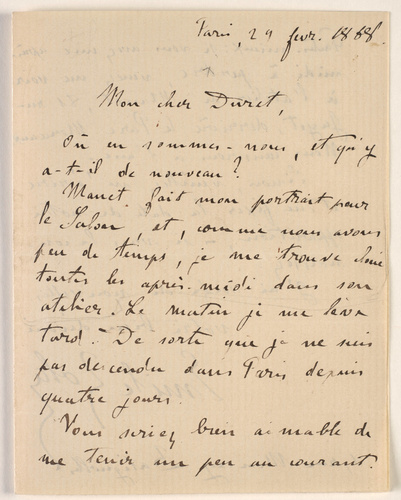 Paris, 29 fevr. 1868.
Mon cher Duret,
Où en sommes-nous, et qu'y
a-t-il de nouveau?
Manet fait mon portrait pour
le Salon, et, comme nous avons
peu de temps, je me trouve cloué
toutes les après-midi dans son
atelier. Le matin je me lève
tard. De sorte que je ne suis
pas descendu dans Paris depuis
quatre jours.
Vous seriez bien aimable de
me tenir un peu au courant.